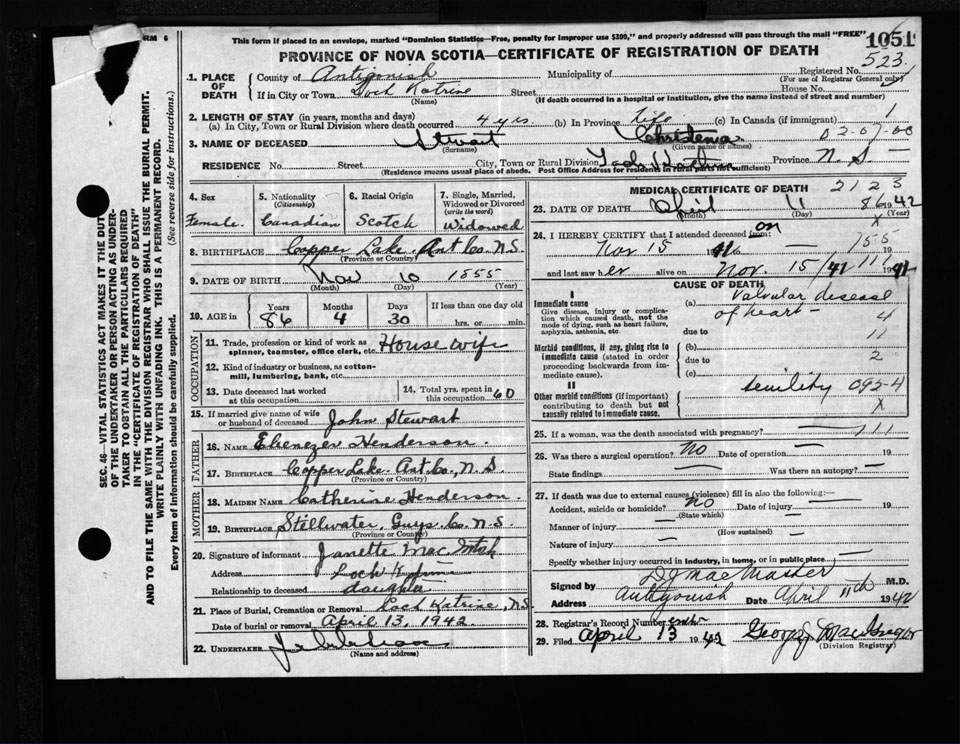 RM 6
This form if placed in an envelope, marked "Dominion Statistics—Free, penalty for improper use $300," and properly addressed will pass through the mail "FREE"
1051
PROVINCE OF NOVA SCOTIA—CERTIFICATE OF REGISTRATION OF DEATH
523
SEC. 46—VITAL STATISTICS ACT MAKES IT THE DUTY
OF THE UNDERTAKER OR PERSON ACTING AS UNDER-
TAKER TO OBTAIN ALL THE PARTICULARS REQUIRED
IN THE "CERTIFICATE OF REGISTRATION OF DEATH"
AND TO FILE THE SAME WITH THE DIVISION REGISTRAR WHO SHALL ISSUE THE BURIAL PERMIT.
WRITE PLAINLY WITH UNFADING INK. THIS IS A PERMANENT RECORD.
Every item of information should be carefully supplied. (See reverse side for instructions.)
1. PLACE OF DEATH County of Antigonish Municipality of Registered No.
(For use of Registrar General only)
If in City or Town Loch Katrine Street House No.
(Name) (If death occurred in a hospital or institution, give the name instead of street and number)
2. LENGTH OF STAY (in years, months and days)
(a) In City, Town or Rural Division where death occurred 4 yrs. (b) In Province life (c) In Canada (if immigrant) 1
3. NAME OF DECEASED Stewart Christenia
(Surname) (Given name or names)
RESIDENCE No. Street City, Town or Rural Division Province N. S.
(Residence means usual place of abode. Post Office Address for residents in rural parts not sufficient)
4. Sex Female
5. Nationality (Citizenship) Canadian
6. Racial Origin Scotch
7. Single, Married, Widowed or Divorced (write the word) Widowed
8. BIRTHPLACE Copper Lake, Ant Co. N.S.
(Province or Country)
9. DATE OF BIRTH Nov 10 1855
(Month) (Day) (Year)
10. AGE in Years Months Days If less than one day old
86 4 30 hrs. or min.
OCCUPATION
11. Trade, profession or kind of work as spinner, teamster, office clerk, etc. Housewife
12. Kind of industry or business, as cotton-mill, lumbering, bank, etc.
13. Date deceased last worked at this occupation
14. Total yrs. spent in this occupation 60
15. If married give name of wife or husband of deceased John Stewart
FATHER
16. NAME Ebenezer Henderson.
17. BIRTHPLACE Copper Lake Ant. Co., N. S.
(Province or Country)
MOTHER
18. MAIDEN NAME Catherine Henderson.
19. BIRTHPLACE Stillwater, Guys. Co. N.S.
(Province or Country)
20. Signature of informant Janette
Address Loch
Relationship to deceased daughter
21. Place of Burial, Cremation or Removal Loch Katrine, N.S
Date of burial or removal April 13, 1942
22. UNDERTAKER
(Name and address)
MEDICAL CERTIFICATE OF DEATH 2123
23. DATE OF DEATH April 11 1942
(Month) (Day) (Year)
24. I HEREBY CERTIFY that I attended deceased from: on
Nov 15 19
and last saw her alive on Nov. 15/41 19 41
CAUSE OF DEATH
I
Immediate cause
Give disease, injury or complication which caused death, not the mode of dying, such as heart failure, asphyxia, asthenia, etc.
(a) Valvular disease
of heart 4
due to 11
Morbid conditions, if any, giving rise to immediate cause (stated in order proceeding backwards from immediate cause).
(b)
due to 2
(c)
II
Senility 095-4
Other morbid conditions (if important) contributing to death but not causally related to immediate cause.
X
25. If a woman, was the death associated with pregnancy?
26. Was there a surgical operation? No Date of operation 19
State findings Was there an autopsy?
27. If death was due to external causes (violence) fill in also the following:—
Accident, suicide or homicide? No Date of injury 19
(State which)
Manner of injury
(How sustained)
Nature of injury
Specify whether injury occurred in industry, in home, or in public place
Signed by D J MacMaster M.D.
Address Antigonish Date April 11th 1942
28. Registrar's Record Number
29. Filed April 13 1942 George MacGregor
(Division Registrar)